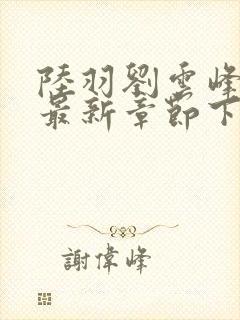 陸羽劉雲峰
最新章節下
謝偉峰